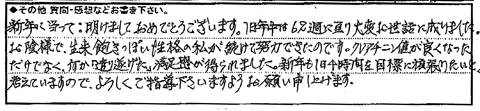 ●その他 質問・感想などお書き下さい。
新年に当って：明けましておめでとうございます。旧年中は62週に亘り大変お世話に成りました。
お陰様で、生来飽きっぽい性格の私が続けて努力できたのです。クレアチニン値が良くなった
だけでなく、何か「遣り遂げた」満足感が得られました。新年も1日4時間を目標に頑張りたいと
考えていますので、よろしくご指導下さいますようお願い申し上げます。